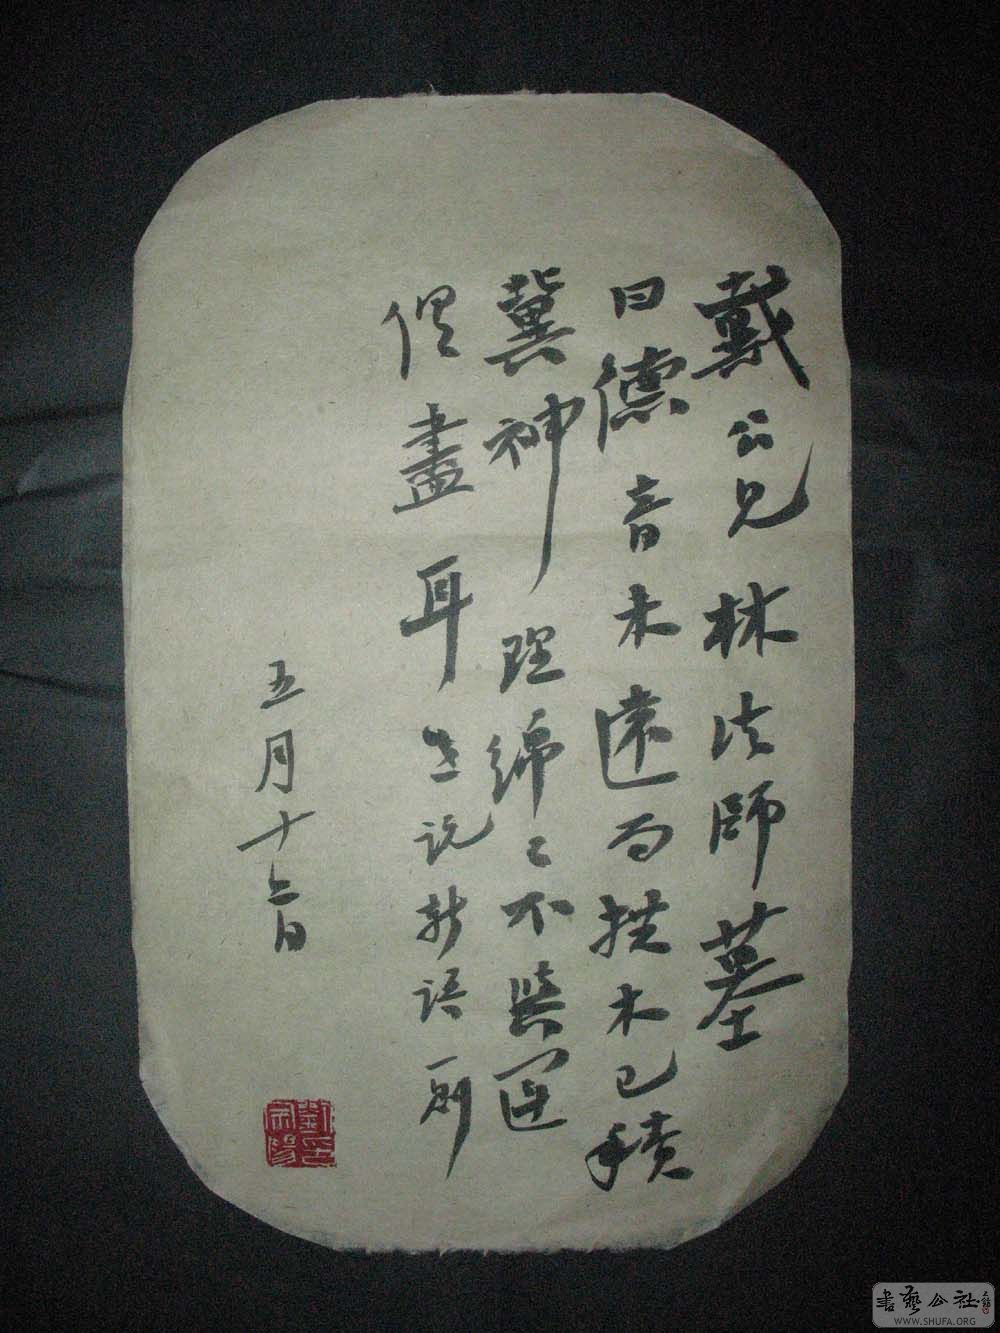 戴公見林法師墓
曰德音未遠而拱木已積
冀神理綿〻不與運
俱盡耳世說新語一則
五月十二日
書藝公社
WWW.SHUFA.ORG